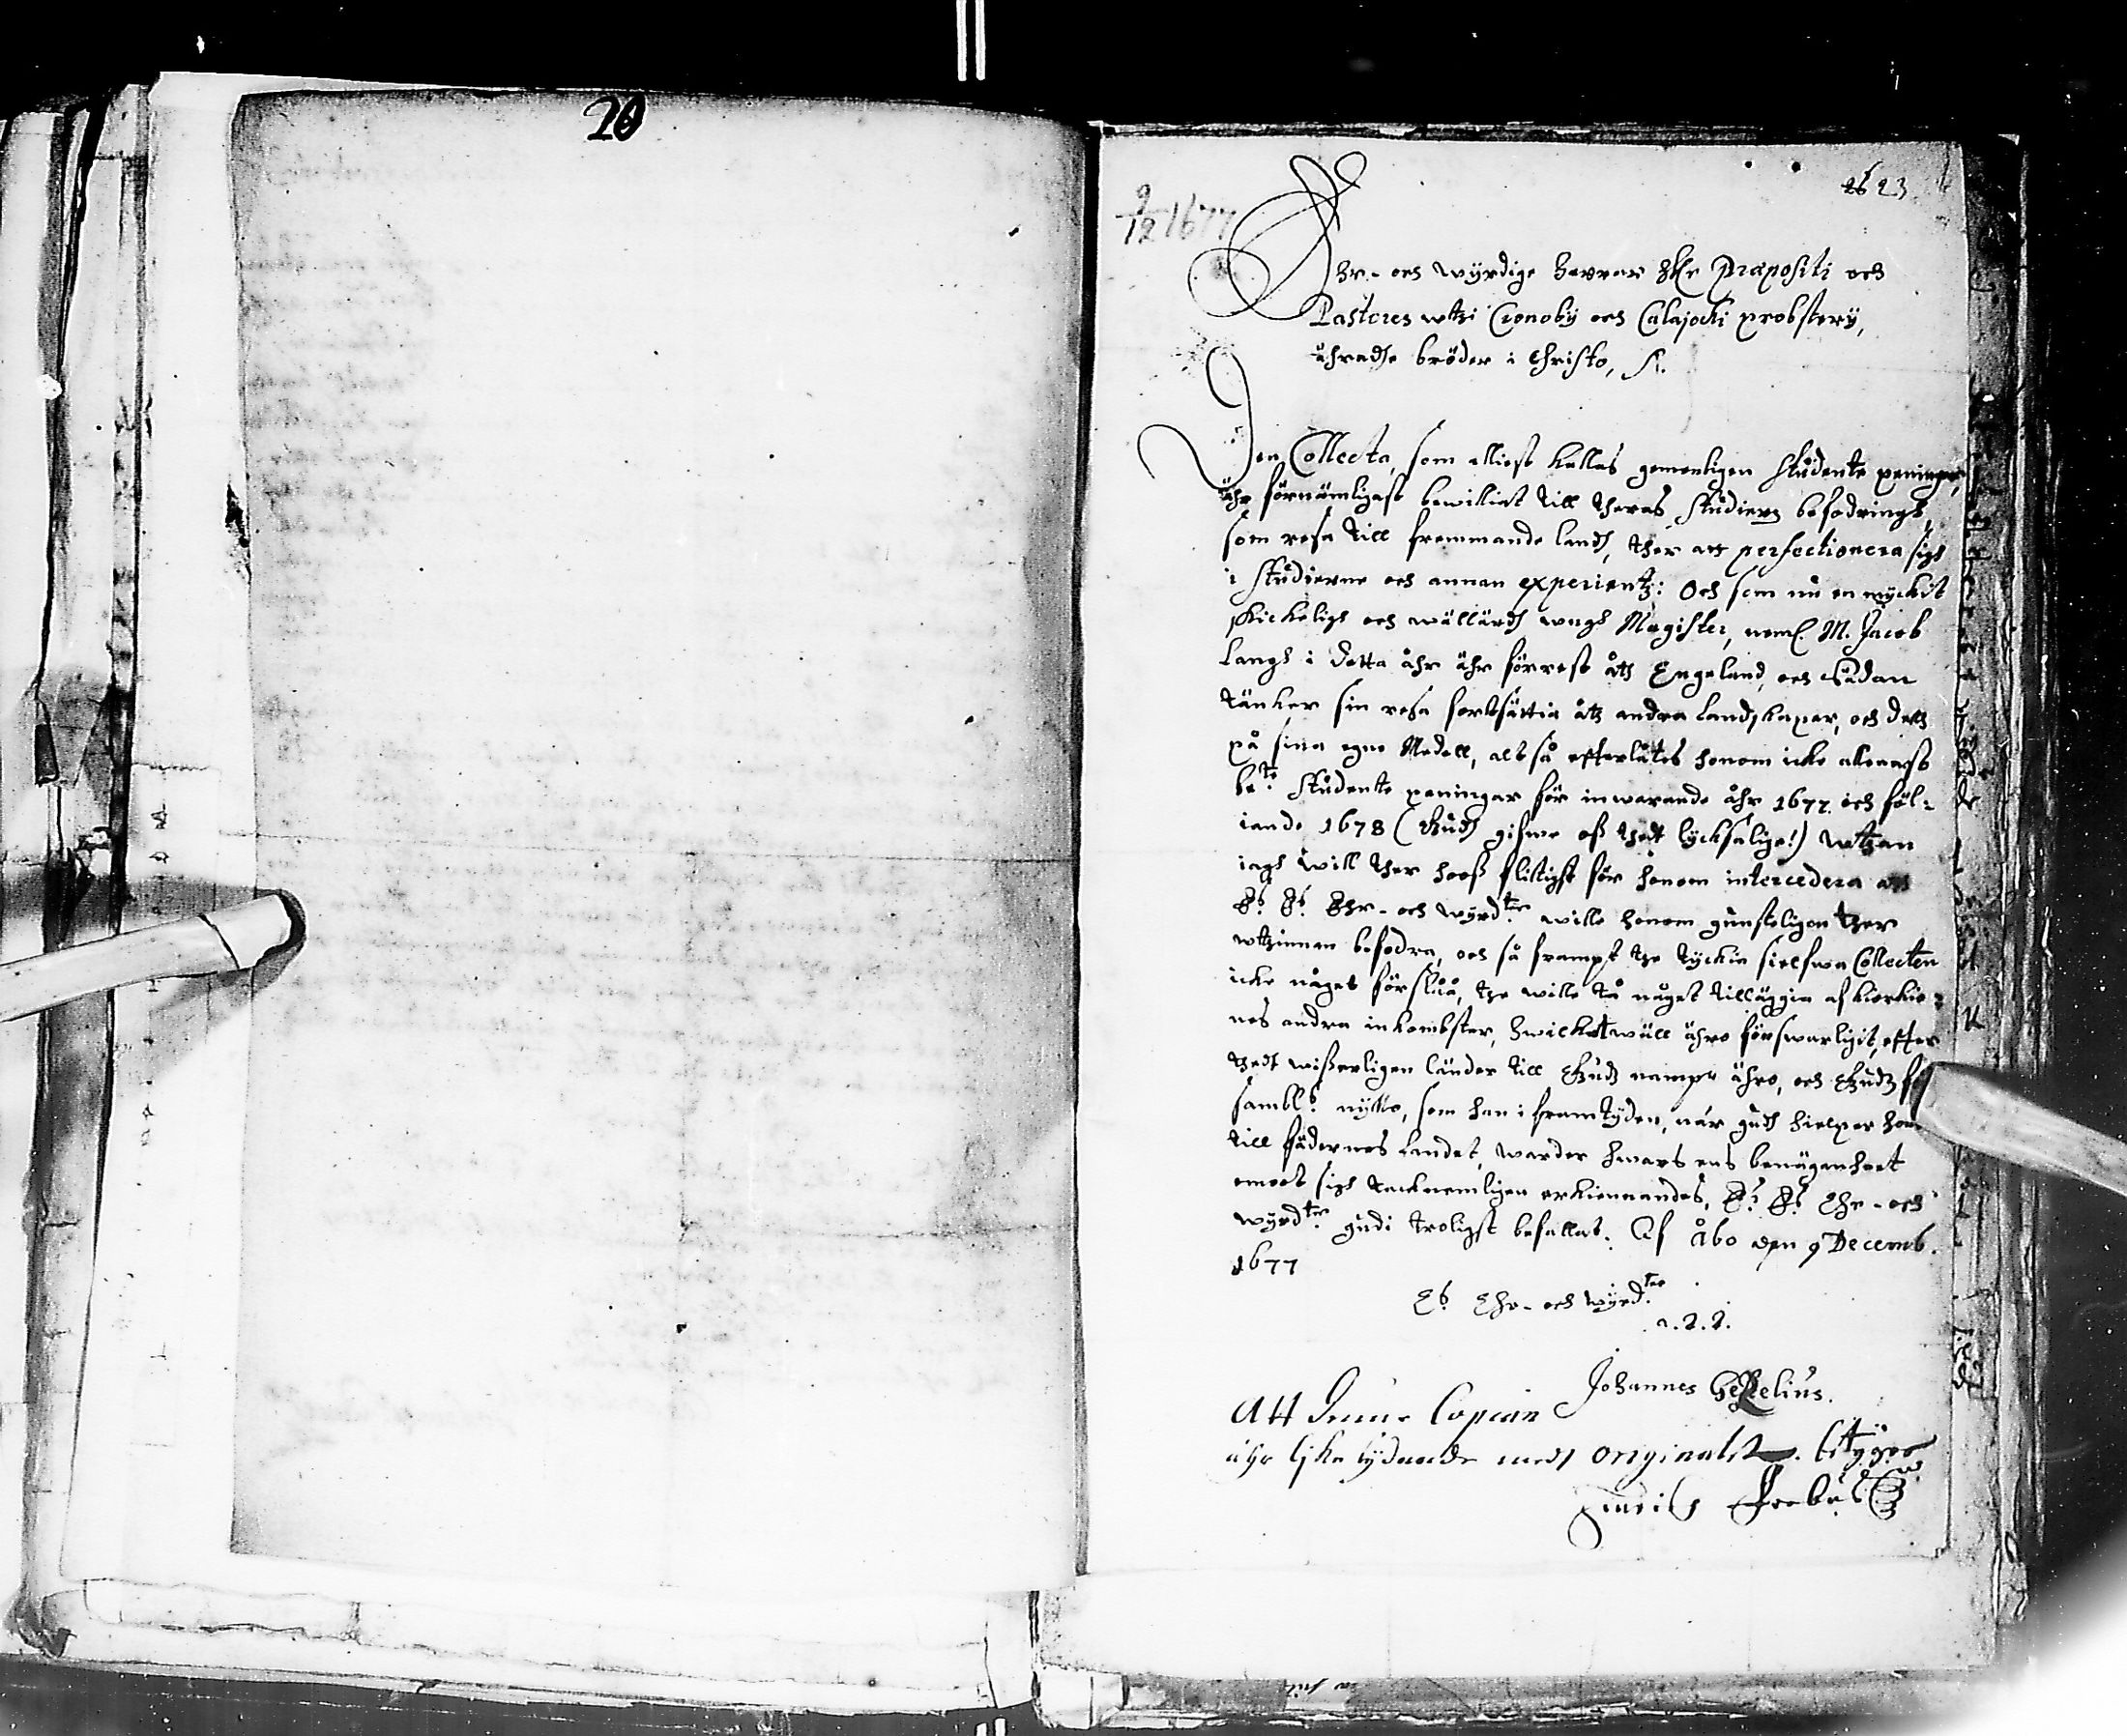 20
9/12 1677
26 23
Ehr- och wyrdige Herrar Hr Præpositi och
Pastores wthi Cronoby och Calajochi probstery,
ährade bröder i Christo, S.
Den Collecta, som elliest kallas gemenligen studente peningar,
ähr förnämligast bewilliat till theras studiers befodringh,
som resa till fremmande landh, ther att perfectionera sigh
i studierne och annan experientz: Och som nu en myckit
skickeligh och wällärdh ungh Magister, neml. M. Jacob
Langh i detta åhr ähr förrest åth Engeland, och sädan
tänker sin resa fortsättia åth andra landskaper, och deth
på sina egne Medell, altså effterlåtes honom icke allenast
be:te studente peningar för inwarande åhr 1677 och föl-
iande 1678 (Gudh gifwe oss thedt lycksalige!) uthan
iagh will ther hooss flitigst för honom intercedera att
E:s E:s Ehr- och wyrd:ter wille honom gunsteligen ther
wthinnan befodra, och så frampt the tyckia sielfwa Collecten
icke någet förslåå, the wille tå någet tilläggia af kiörkio-
nes andra inkombster, hwilket wäll ähro förswarligit, effter
thedt wisserligen länder till Gudz nampn ähro, och Gudz för
sambl:s nytto, som han i framtyden, når gudh hielper honom
till fädernes landet, warder hwars ens benägenheet
emoot sigh tacknemligen erkiennandes, E:s E:s Ehr- och
wyrd:ter gudi troligst befallat. Af Åbo den 9 Decemb.
1677
E:s Ehr- och Wyrd:ter
a. t. t.
Johannes Gezelius.
Att denne Copian
ähr lijka lydande medh originalet betygar